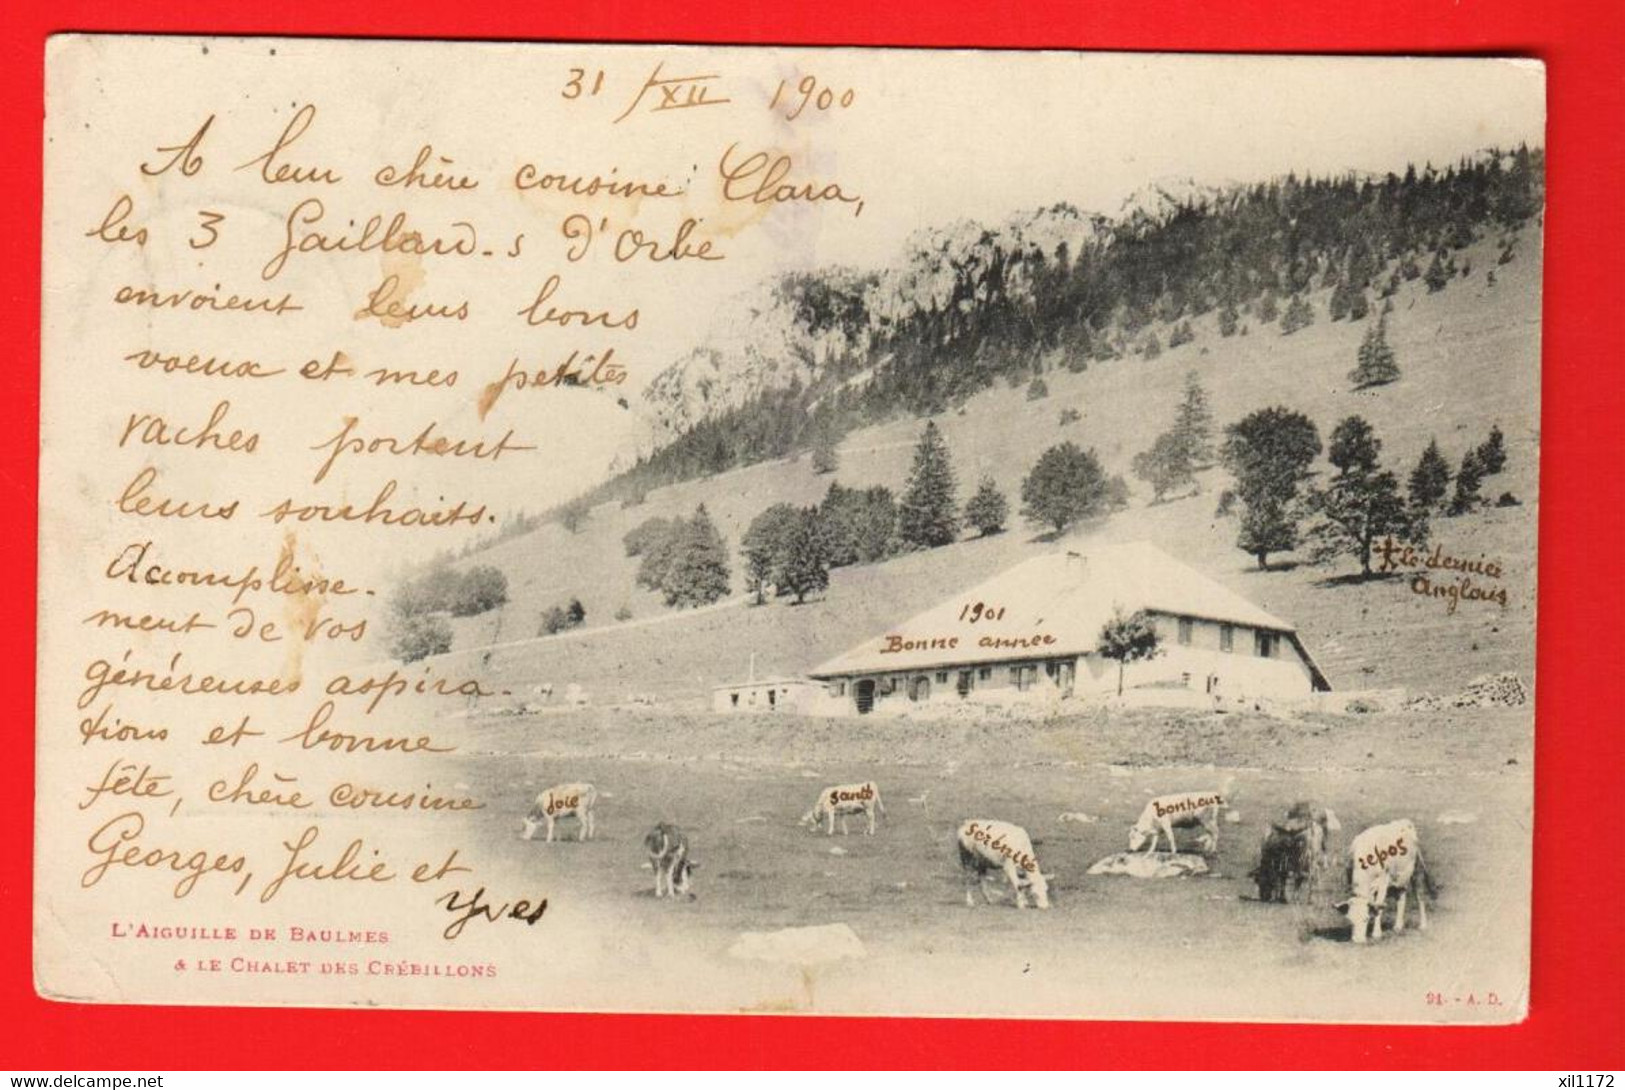 31 /XII 1900
A leur chère cousine Clara,
les 3 Gaillard-s d'Orbe
envoient leurs bons
voeux et mes petites
vaches portent
leurs souhaits.
Accomplisse-
ment de vos
généreuses aspira-
tions et bonne
fête, chère cousine
Georges, Julie et
Yves
1901
Bonne année
Le dernier
Anglais
joie
santé
sérénité
bonheur
repos
L'AIGUILLE DE BAULMES
& LE CHALET DES CRÉBILLONS
91. - A. D.
delcampe.net
xil1172